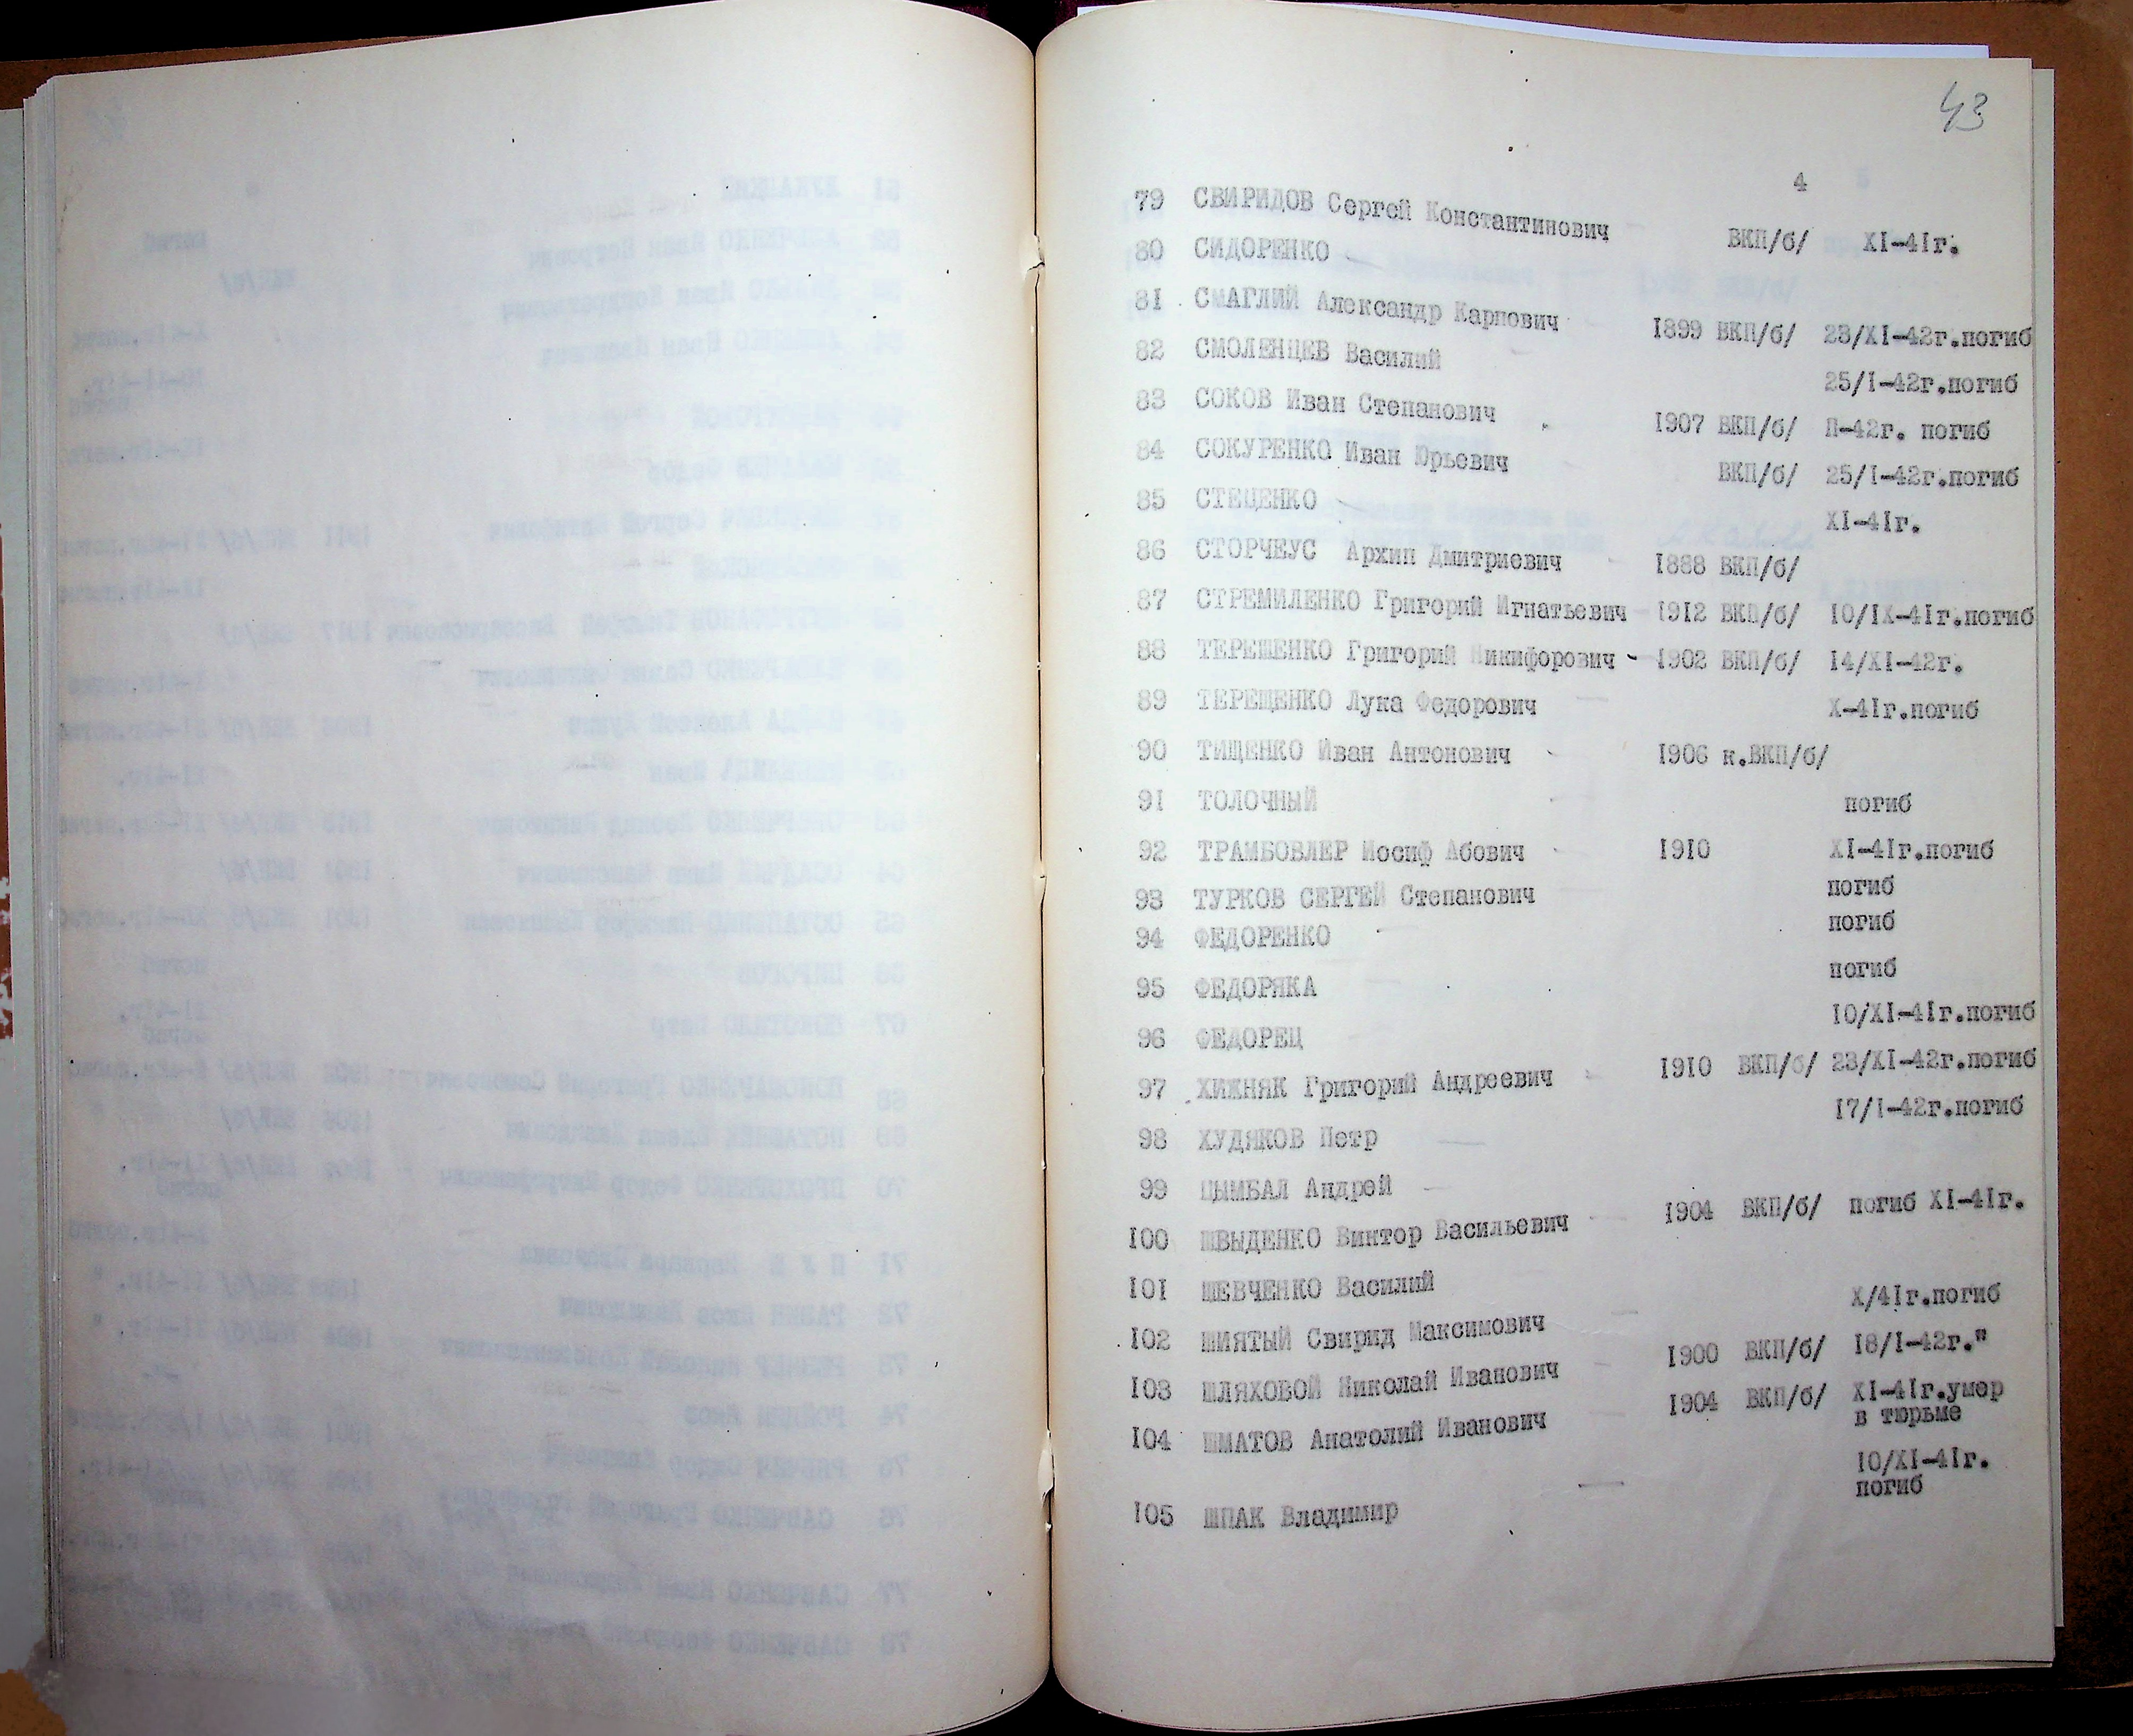 43
4
79 СВИРИДОВ Сергей Константинович ВКП/б/ XI-41г.
80 СИДОРЕНКО —
81 СМАГЛИЙ Александр Карпович 1899 ВКП/б/ 23/XI-42г.погиб
82 СМОЛЕНЦЕВ Василий — 25/I-42г.погиб
83 СОКОВ Иван Степанович 1907 ВКП/б/ П-42г. погиб
84 СОКУРЕНКО Иван Юрьевич ВКП/б/ 25/I-42г.погиб
85 СТЕЦЕНКО — XI-41г.
86 СТОРЧЕУС Архип Дмитриевич - 1888 ВКП/б/
87 СТРЕМИЛЕНКО Григорий Игнатьевич - 1912 ВКП/б/ 10/IX-41г.погиб
88 ТЕРЕШЕНКО Григорий Никифорович - 1902 ВКП/б/ 14/XI-42г.
89 ТЕРЕЩЕНКО Лука Федорович — X-41г.погиб
90 ТИЩЕНКО Иван Антонович - 1906 к.ВКП/б/
91 ТОЛОЧНЫЙ — погиб
92 ТРАМБОВЛЕР Иосиф Абович - 1910 XI-41г.погиб
93 ТУРКОВ СЕРГЕЙ Степанович — погиб
94 ФЕДОРЕНКО — погиб
95 ФЕДОРЯКА — погиб
96 ФЕДОРЕЦ — 10/XI-41г.погиб
97 ХИЖНЯК Григорий Андреевич - 1910 ВКП/б/ 23/XI-42г.погиб
98 ХУДЯКОВ Петр — 17/I-42г.погиб
99 ЦЫМБАЛ Андрей —
100 ШВЫДЕНКО Виктор Васильевич — 1904 ВКП/б/ погиб XI-41г.
101 ШЕВЧЕНКО Василий —
102 ШИЯТЫЙ Свирид Максимович — X/41г.погиб
103 ШЛЯХОВОЙ Николай Иванович — 1900 ВКП/б/ 18/I-42г."
104 ШМАТОВ Анатолий Иванович — 1904 ВКП/б/ XI-41г.умер
в тюрьме
105 ШПАК Владимир — 10/XI-41г.
погиб